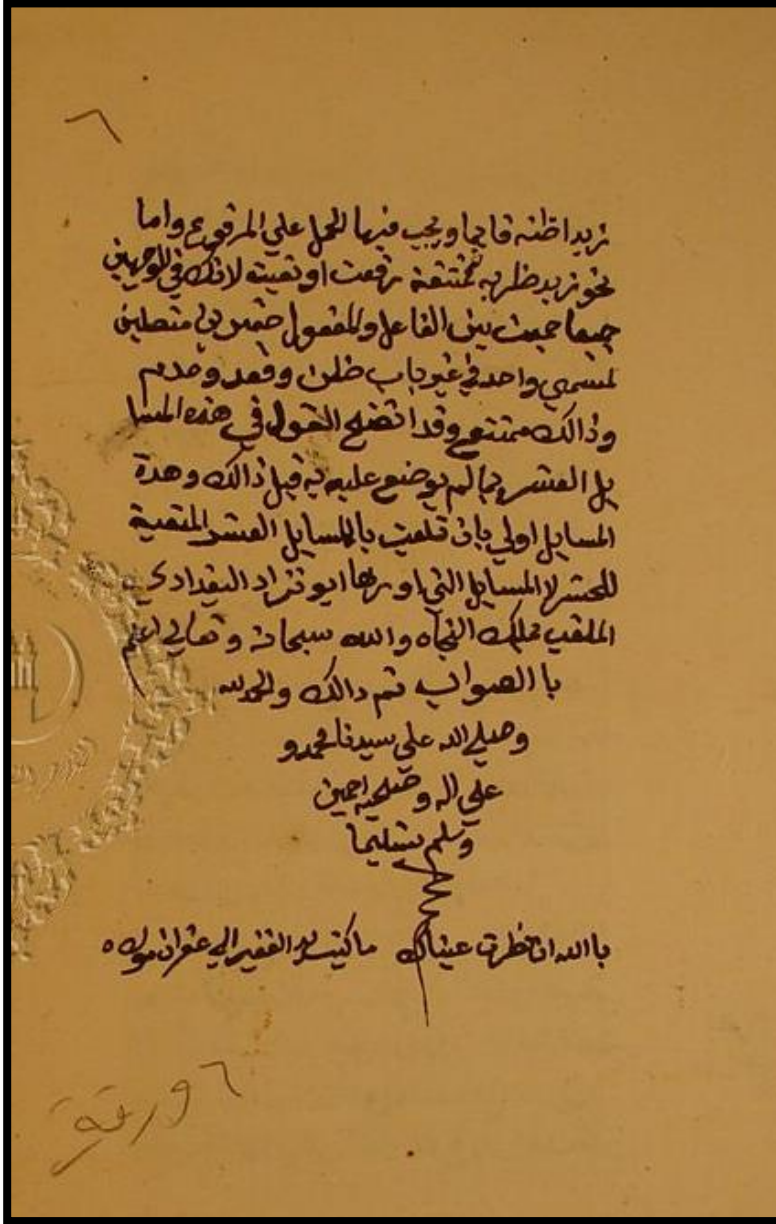 ٦
زيد اظنه قايما ويجب فيها الحمل علي المرفوع واما
نحو زيد ظربه فممتنعة رفعت او نصبته لانك في الوجهين
جميعا جمعت بين الفاعل والمفعول ضميرين متصلين
لمسمي واحد في غير باب ظلن وفعد وعدم
وذالك ممتنع وقد اتضح القول في هذه المسا
يل العشر بما لم يوضع عليه به قبل ذالك وهدة
المسايل اولي بان تلقب بالمسايل العشر المتعبة
للحشر لا المسايل التي اوردها ابو نزار البغدادي
الملقب بملك النجاه والله سبحانه وتعالي اعلم
با الصواب تم دالك والحمد لله
وصلي الله علي سيدنا محمد و
علي اله وصحبه اجمين
وسلم تسليما
با الله ان نظرت عيناك ما كتبت يد الفقير الي غفران مولاه
٦ ورقة